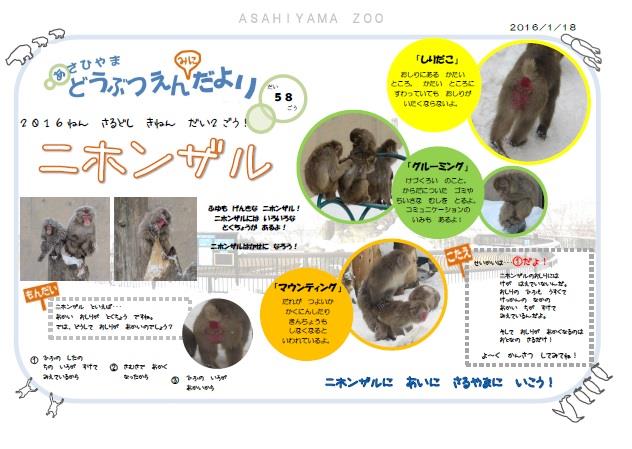 ASAHIYAMA ZOO
2016/1/18
あさひやま
みに
どうぶつえんだより
だい
58
ごう
2016ねん さるどし きねん だい2ごう!
ニホンザル
ふゆも げんきな ニホンザル!
ニホンザルには いろいろな
とくちょうが あるよ!
ニホンザルはかせに なろう!
「しりだこ」
おしりにある かたい
ところ。 かたい ところに
すわっていても おしりが
いたくならないよ。
「グルーミング」
けづくろい のこと。
からだについた ゴミや
ちいさな むしを とるよ。
コミュニケーションの
いみも あるよ!
「マウンティング」
だれが つよいか
かくにんしたり
きんちょうも
しなくなると
いわれているよ。
もんだい
ニホンザル といえば…
あかい おしりが とくちょう ですね。
では、どうして おしりが あかいのでしょう?
① ひふの したの
ちの いろが すけて
みえているから
② さむさで あかく
なったから
③ ひふの いろが
あかいから
こたえ
せいかいは…①だよ!
ニホンザルのおしりには
けが はえていないんだよ。
おしりの ひふも うすくて
けっかんの なかの
あかい ちが すけて
みえているんだよ。
そして おしりが あかくなるのは
おとなの さるだけ!
よ~く かんさつ してみてね!
ニホンザルに あいに さるやまに いこう!